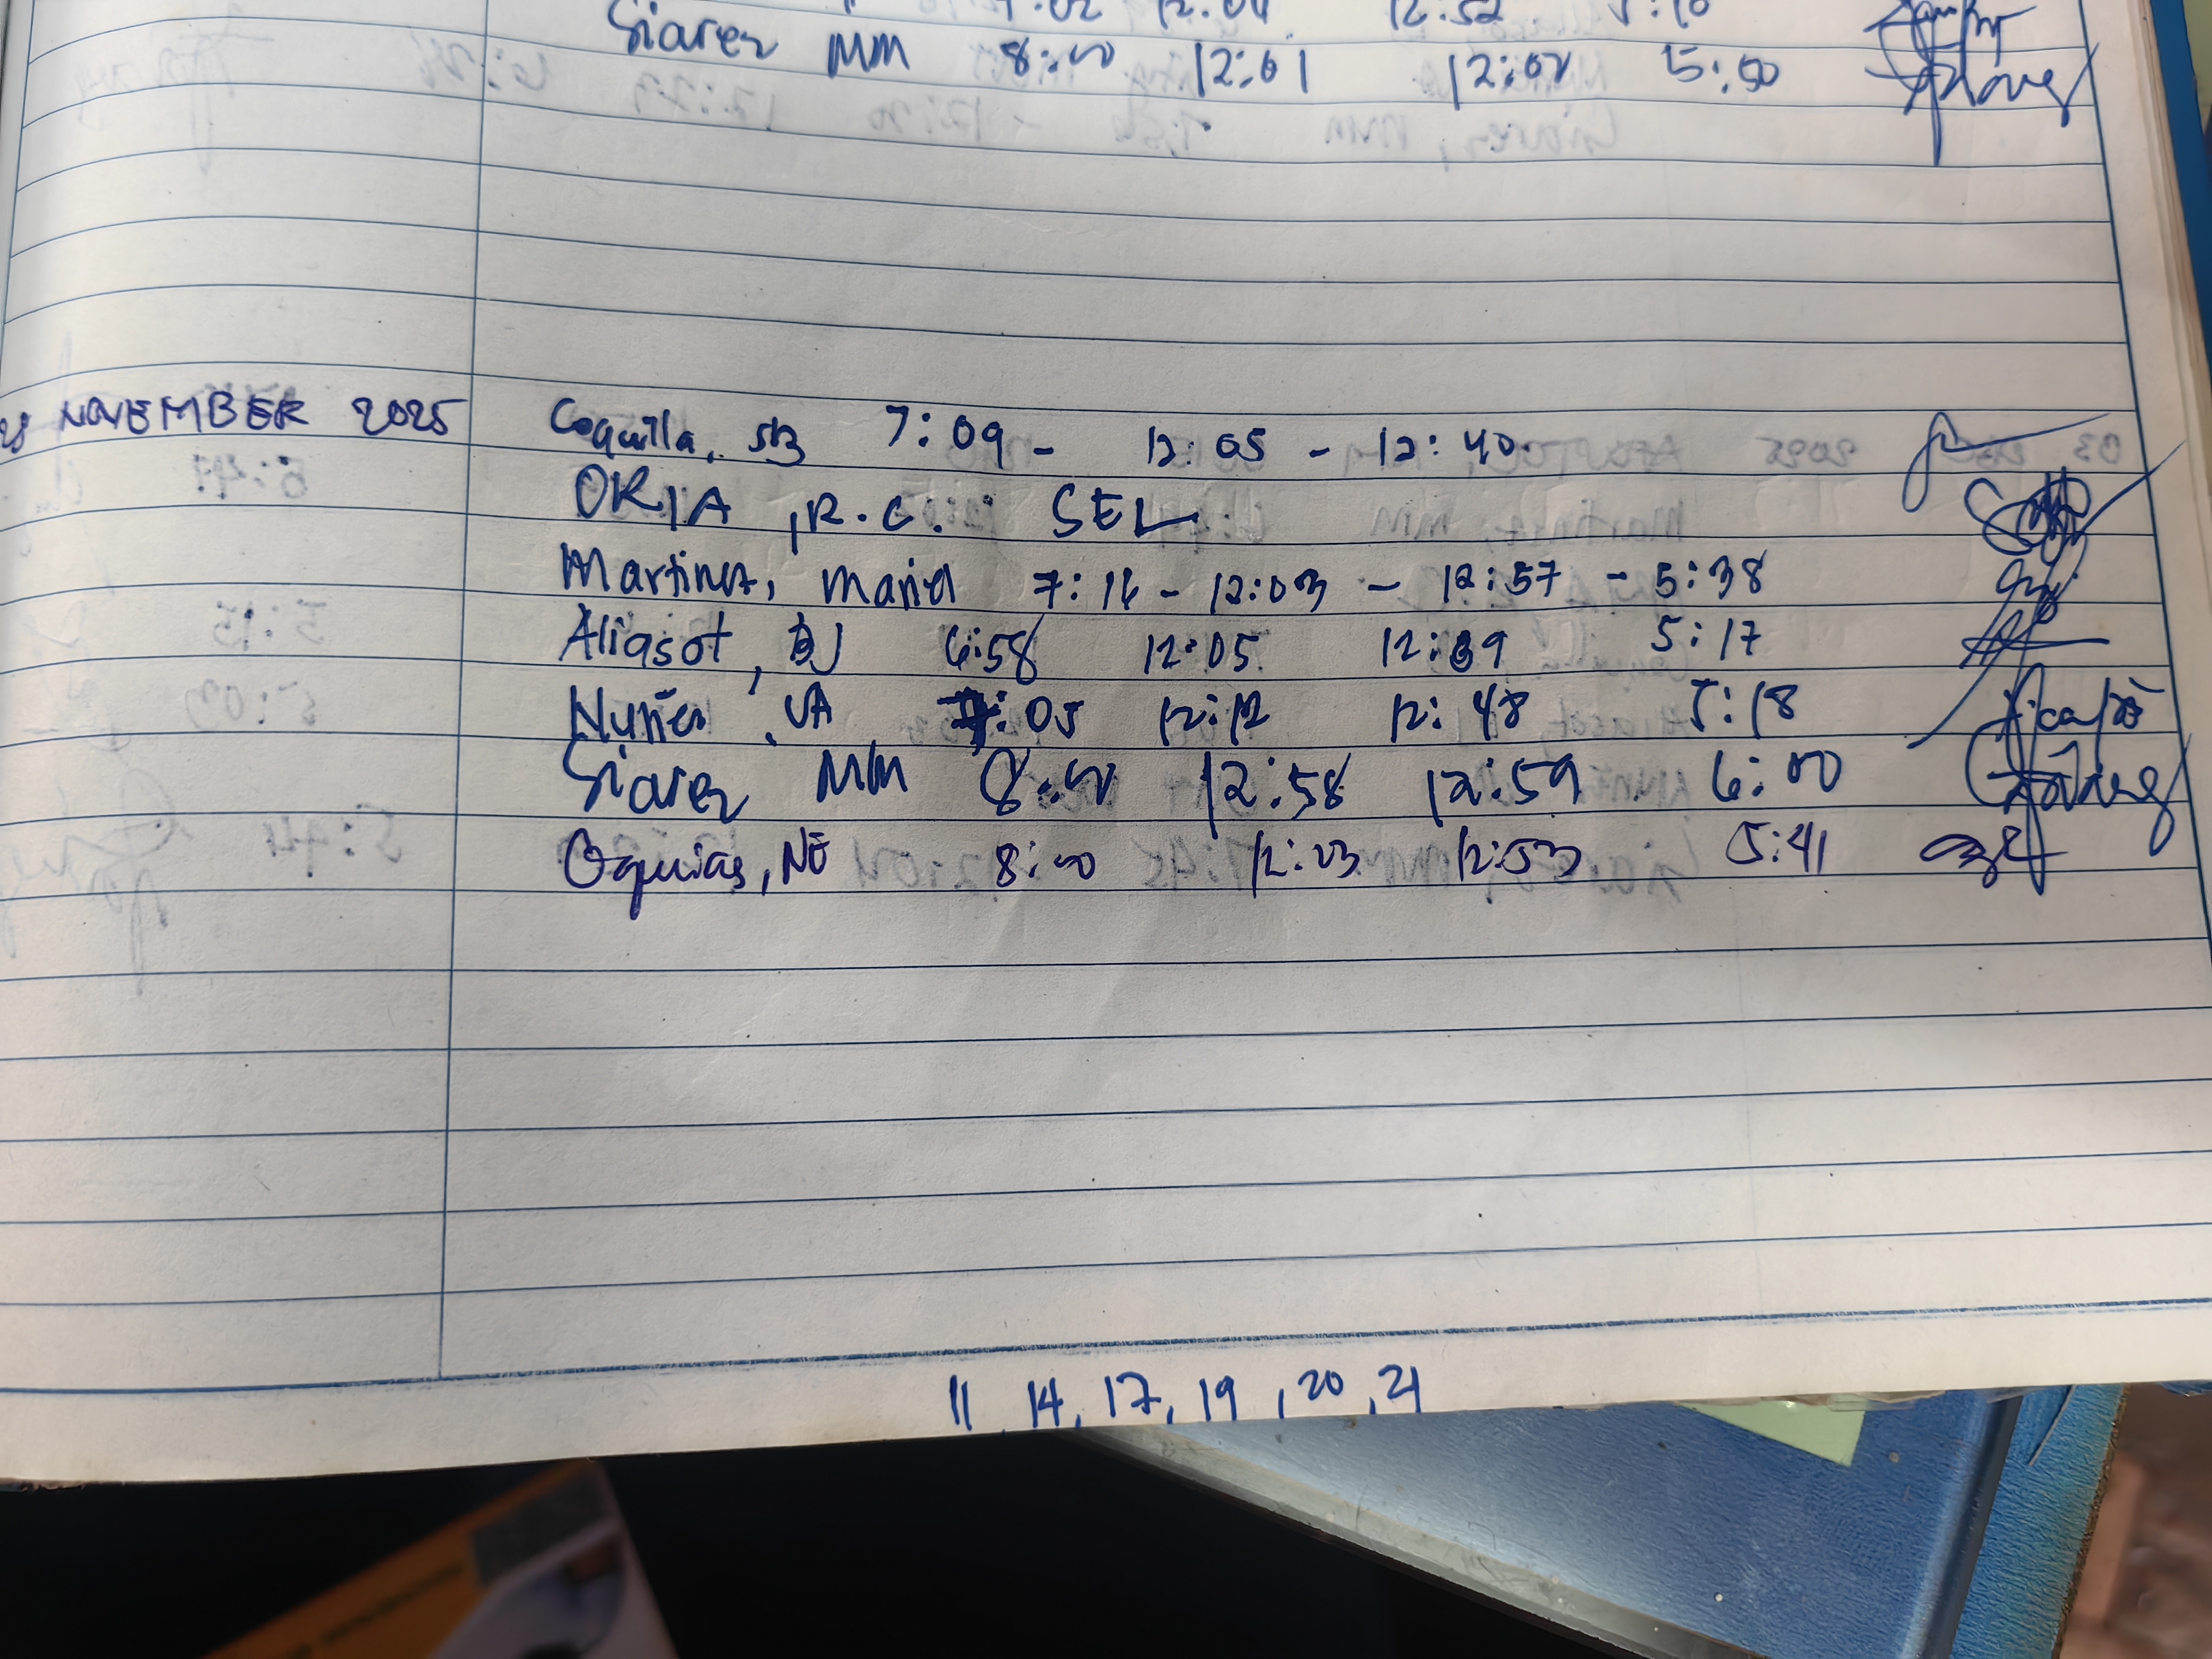 7:02 12:04 12:52 5:10
Siarez MM 8:00 12:01 12:02 5:00
28 NOVEMBER 2025 Coquilla, SB 7:09 - 12:05 - 12:40
ORIA, R.C. : SEL
Martinez, Mariel 7:16 - 12:03 - 12:57 - 5:38
Aliasot, BJ 6:58 12:05 12:39 5:17
Nuñez, VA 7:05 12:12 12:48 5:18
Siarez MM 8:00 12:58 12:59 6:00
Oquias, NE 8:00 12:23 12:53 5:41
11 14, 17, 19, 20, 21